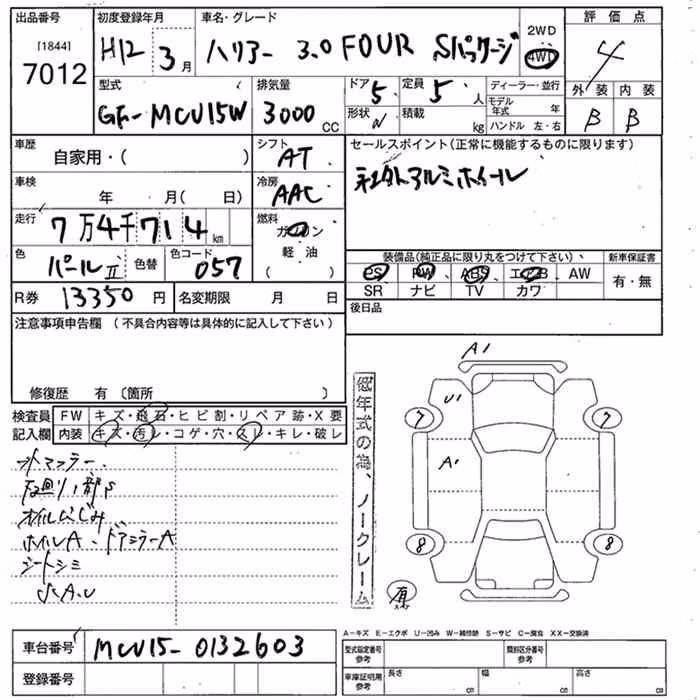 出品番号
[1844]
7012
初度登録年月
H12 3月
車名・グレード
ハリアー 3.0 FOUR Sパッケージ
2WD
4WD
評価点
4
型式
GF-MCU15W
排気量
3000 CC
ドア 5
定員 5 人
形状 W
積載 kg
ディーラー・並行
モデル年式 年
ハンドル 左・右
外装 内装
B B
車歴
自家用・( )
シフト
AT
セールスポイント(正常に機能するものに限ります)
社外アルミホイール
車検
年 月( 日)
冷房
AAC
走行
7万4千714km
燃料
ガソリン
軽油
( )
色
パールII
色替
色コード
057
装備品(純正品に限り丸をつけて下さい)、
新車保証書
PS PW ABS エアB AW
有・無
SR ナビ TV カワ
R券 13350円
名変期限 月 日
後日品
注意事項申告欄(不具合内容等は具体的に記入して下さい)
修復歴 有〔箇所 〕
検査員
記入欄
FW キズ・飛石・ヒビ割・リペア跡・X要
内装 キズ・汚レ・コゲ・穴・スレ・キレ・破レ
オイルにじみ
ホイルA、ドアミラーA
シートシミ
低年式の為、ノークレーム
A1
U1
7
7
A1
8
8
有
スペア
A-キズ E-エクボ U-凹み W-補修跡 S-サビ C-腐食 XX-交換済
車台番号
MCU15-0132603
登録番号
型式指定番号
参考
類別区分番号
参考
車庫証明用
参考
長さ cm
幅 cm
高さ cm